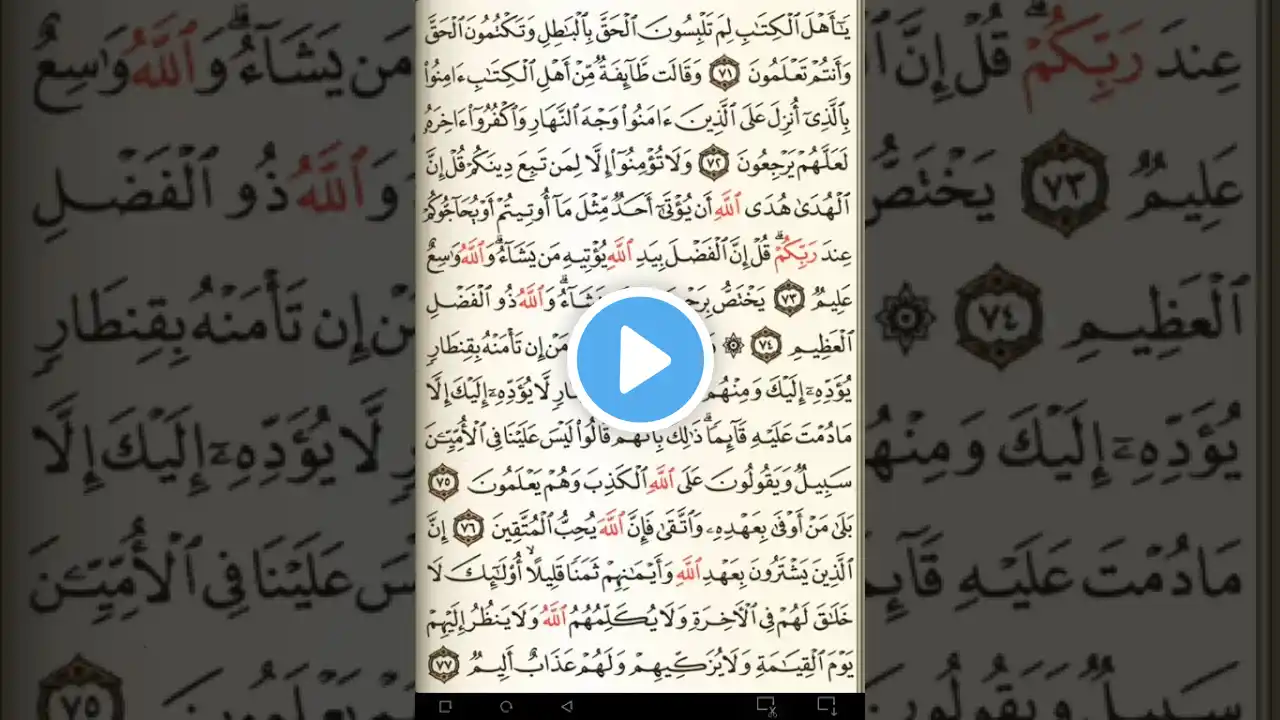 يَٰٓأَهْلَ ٱلْكِتَٰبِ لِمَ تَلْبِسُونَ ٱلْحَقَّ بِٱلْبَٰطِلِ وَتَكْتُمُونَ ٱلْحَقَّ
وَأَنتُمْ تَعْلَمُونَ ٧١ وَقَالَت طَّآئِفَةٌ مِّنْ أَهْلِ ٱلْكِتَٰبِ ءَامِنُوا۟
بِٱلَّذِىٓ أُنزِلَ عَلَى ٱلَّذِينَ ءَامَنُوا۟ وَجْهَ ٱلنَّهَارِ وَٱكْفُرُوٓا۟ ءَاخِرَهُۥ
لَعَلَّهُمْ يَرْجِعُونَ ٧٢ وَلَا تُؤْمِنُوٓا۟ إِلَّا لِمَن تَبِعَ دِينَكُمْ قُلْ إِنَّ
ٱلْهُدَىٰ هُدَى ٱللَّهِ أَن يُؤْتَىٰٓ أَحَدٌ مِّثْلَ مَآ أُوتِيتُمْ أَوْ يُحَآجُّوكُمْ
عِندَ رَبِّكُمْ ۗ قُلْ إِنَّ ٱلْفَضْلَ بِيَدِ ٱللَّهِ يُؤْتِيهِ مَن يَشَآءُ ۗ وَٱللَّهُ وَٰسِعٌ
عَلِيمٌ ٧٣ يَخْتَصُّ يَشَآءُ ۗ وَٱللَّهُ ذُو ٱلْفَضْلِ
ٱلْعَظِيمِ ٧٤ ۞ مَنْ إِن تَأْمَنْهُ بِقِنطَارٍ
يُؤَدِّهِۦٓ إِلَيْكَ وَمِنْهُم لَّا يُؤَدِّهِۦٓ إِلَيْكَ إِلَّا
مَا دُمْتَ عَلَيْهِ قَآئِمًا ۗ ذَٰلِكَ بِأَنَّهُمْ قَالُوا۟ لَيْسَ عَلَيْنَا فِى ٱلْأُمِّيِّۦنَ
سَبِيلٌ وَيَقُولُونَ عَلَى ٱللَّهِ ٱلْكَذِبَ وَهُمْ يَعْلَمُونَ ٧٥
بَلَىٰ مَنْ أَوْفَىٰ بِعَهْدِهِۦ وَٱتَّقَىٰ فَإِنَّ ٱللَّهَ يُحِبُّ ٱلْمُتَّقِينَ ٧٦ إِنَّ
ٱلَّذِينَ يَشْتَرُونَ بِعَهْدِ ٱللَّهِ وَأَيْمَٰنِهِمْ ثَمَنًا قَلِيلًا أُو۟لَٰٓئِكَ لَا
خَلَٰقَ لَهُمْ فِى ٱلْءَاخِرَةِ وَلَا يُكَلِّمُهُمُ ٱللَّهُ وَلَا يَنظُرُ إِلَيْهِمْ
يَوْمَ ٱلْقِيَٰمَةِ وَلَا يُزَكِّيهِمْ وَلَهُمْ عَذَابٌ أَلِيمٌ ٧٧